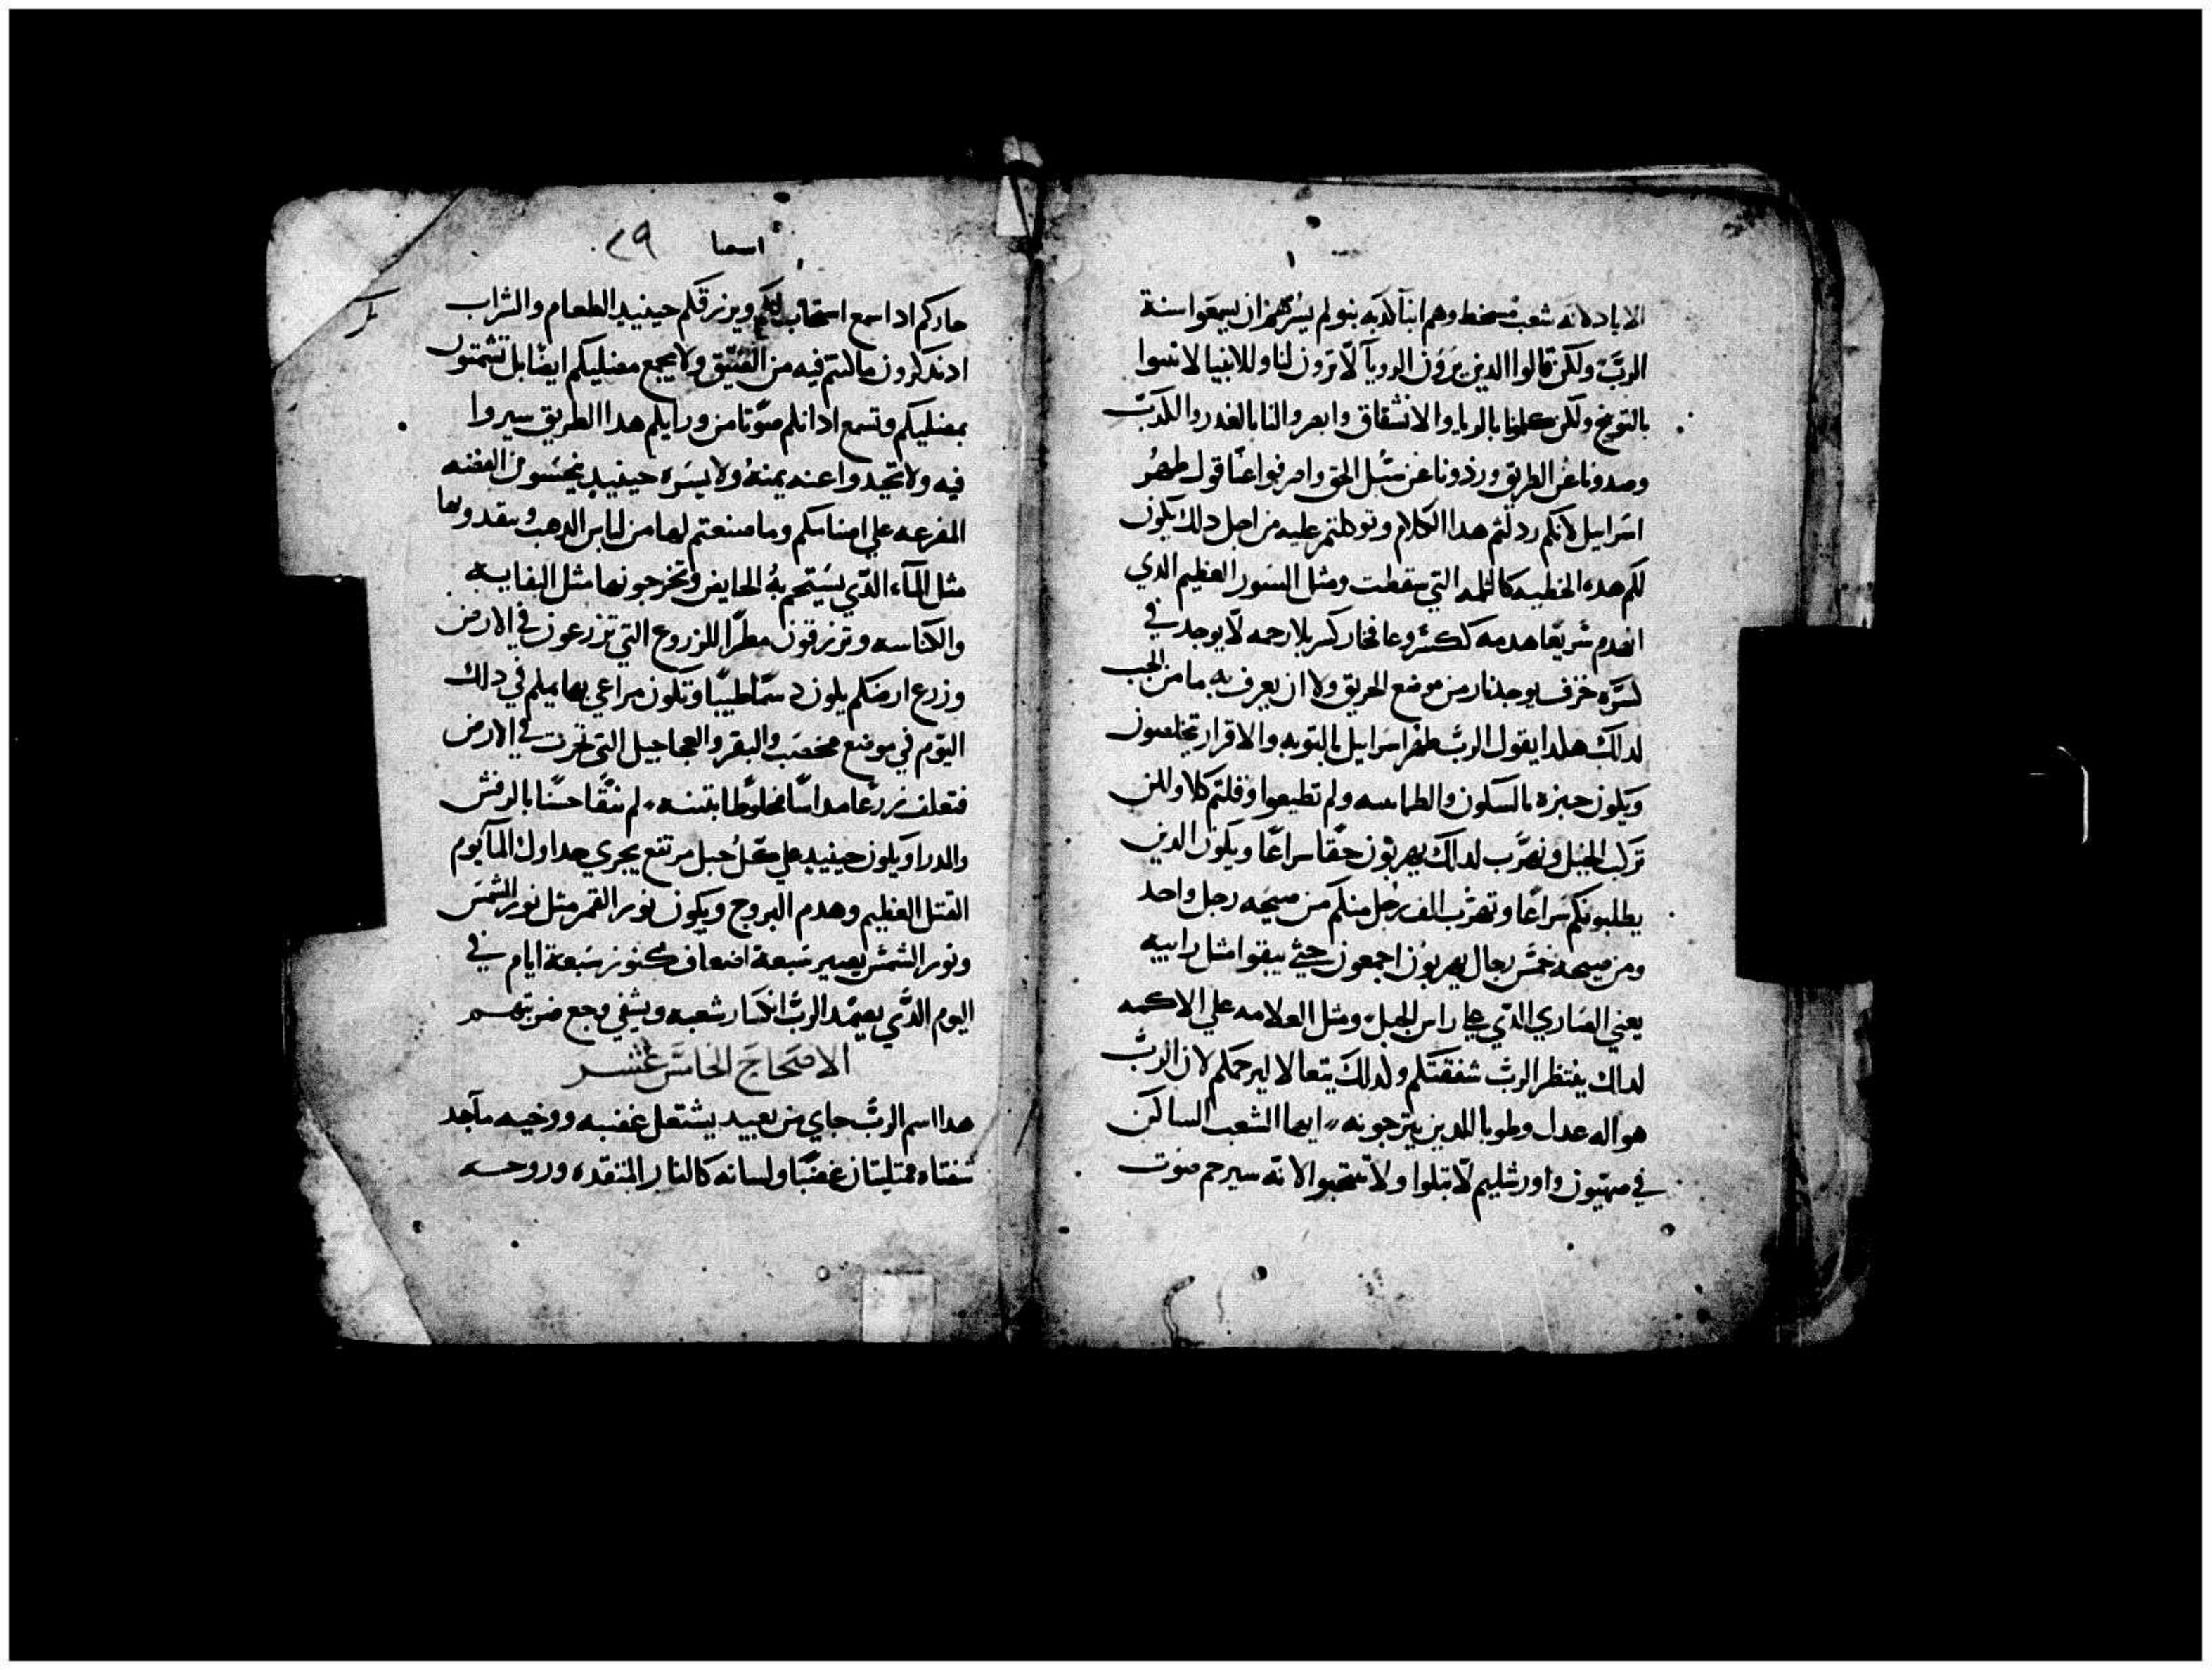 الاباد لانه شعب مسخط وهم ابنآ كدبه بنو لم يسرهم ان يسمعوا سنة
الربّ ولكن قالوا الدين يرون الرويآ لا ترون لنا وللانبيا لا تنبوا
بالتوبيخ ولكن كلمونا بالريا والانشقاق وابصروا لنا بالغدر والكدب
وصدونا عن الطريق وردونا عن سبل الحق واصرفوا عنا قول طهر
اسراييل لانكم ردلتم هدا الكلام وتوكلتم عليه من اجل دلك يكون
لكم هده الخطيه كالثلمه التي سقطت ومثل السور العظيم الدي
انهدم سريعا هدمه ككسر وعا فخار كسر بلا رحمه لا يوجد في
كسره خزف يوجد نار من موضع الحريق ولا ان يغرف به ما من الجب
لدالك هكدا يقول الربّ طهر اسراييل بالتوبه والاقرار تخلصون
ويكون جبزه بالسكون والطمانينه ولم تطيعوا وقلتم كلا ولكن
نركب الخيل ونهرب لدالك يهربون حقا سراعا ويكون الدين
يطلبونكم سراعا وتهرب الف رجل منكم من صيحه رجل واحد
ومن صيحه خمس رجال يهربون اجمعون حتي يبقوا مثل رابيه
يعني الصاري الدي علي راس الجبل ومثل العلامه علي الاكمه
لدالك ينتظر الربّ شفقتكم ولدلك يتعالا ليرحمكم لان الربّ
هو اله عدل وطوبا للدين يترجونه ايها الشعب الساكن
في صهيون واورشليم لا تبلوا ولا تنتحبوا لانه سيرحم صوت
اسعيا ٢٩
ادا سمع استجاب لكم ويرزقكم حينيد الطعام والشراب
ادتدكرون ما كنتم فيه من الضيق ولا يجمع مضليكم ايضا بل تشمتون
بمضليكم وتسمع ادانكم صوتا من ورايكم هدا الطريق سيروا
فيه ولا تحيدوا عنه يمنه ولا يسره حينيد ينجسون الفضه
المفرغه علي اصنامكم وما صنعتم لها من لباس الدهب وتبعدونها
مثل المآء الدي يستحم به الحايض وتخرجونها مثل النفايه
والكناسه وترزقون مطرا للزروع التي تزرعون في الارض
وزرع ارضكم يكون دسمًا طيبًا وتكون مراعي بهايمكم في دلك
اليوم في موضع مخصب والبقر والعجاجيل التي تحرث في الارض
فتعلف زرعا مداسا مخلوطا بتبنه لم ينقا حسنا بالرفش
والدرا ويكون حينيد علي كل جبل مرتفع يجري جداول المآ يوم
القتل العظيم وهدم البروج ويكون نور القمر مثل نور الشمس
ونور الشمس يصير سبعة اضعاف كنور سبعة ايام في
اليوم الدي يعصّد الربّ انكسار شعبه ويشفي وجع ضربتهم
الاصحاح الخامس عشر
هدا اسم الربّ جاي من بعيد يشتعل غضبه ووخيه مآجد
شفتاه ممتليتان غضبًا ولسانه كالنار المتقده وروحه